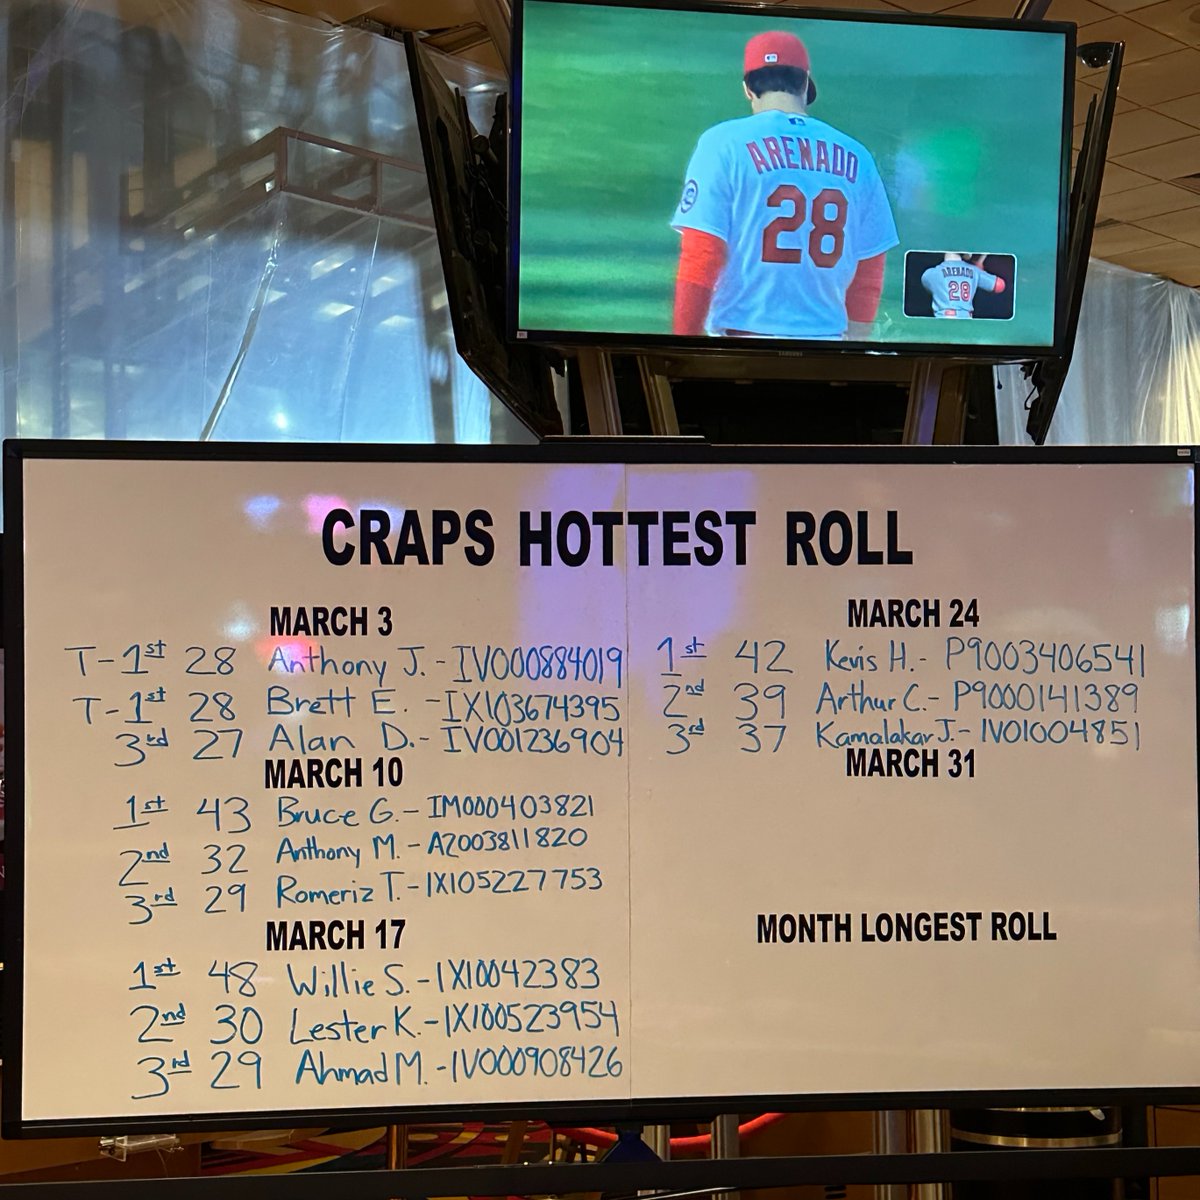 ARENADO
28
ARENADO
28
SAMSUNG
CRAPS HOTTEST ROLL
MARCH 3
T-1st 28 Anthony J.-IV000884019
T-1st 28 Brett E. -IX103674395
3rd 27 Alan D.-IV001236904
MARCH 10
1st 43 Bruce G.-IM000403821
2nd 32 Anthony M.-AZ003811820
3rd 29 Romeriz T.-IX105227753
MARCH 17
1st 48 Willie S.-IX10042383
2nd 30 Lester K.-IX100523954
3rd 29 Ahmad M.-IV000908426
MARCH 24
1st 42 Kevis H.- P9003406541
2nd 39 Arthur C.- P9000141389
3rd 37 Kamalakar J.-IV01004851
MARCH 31
MONTH LONGEST ROLL